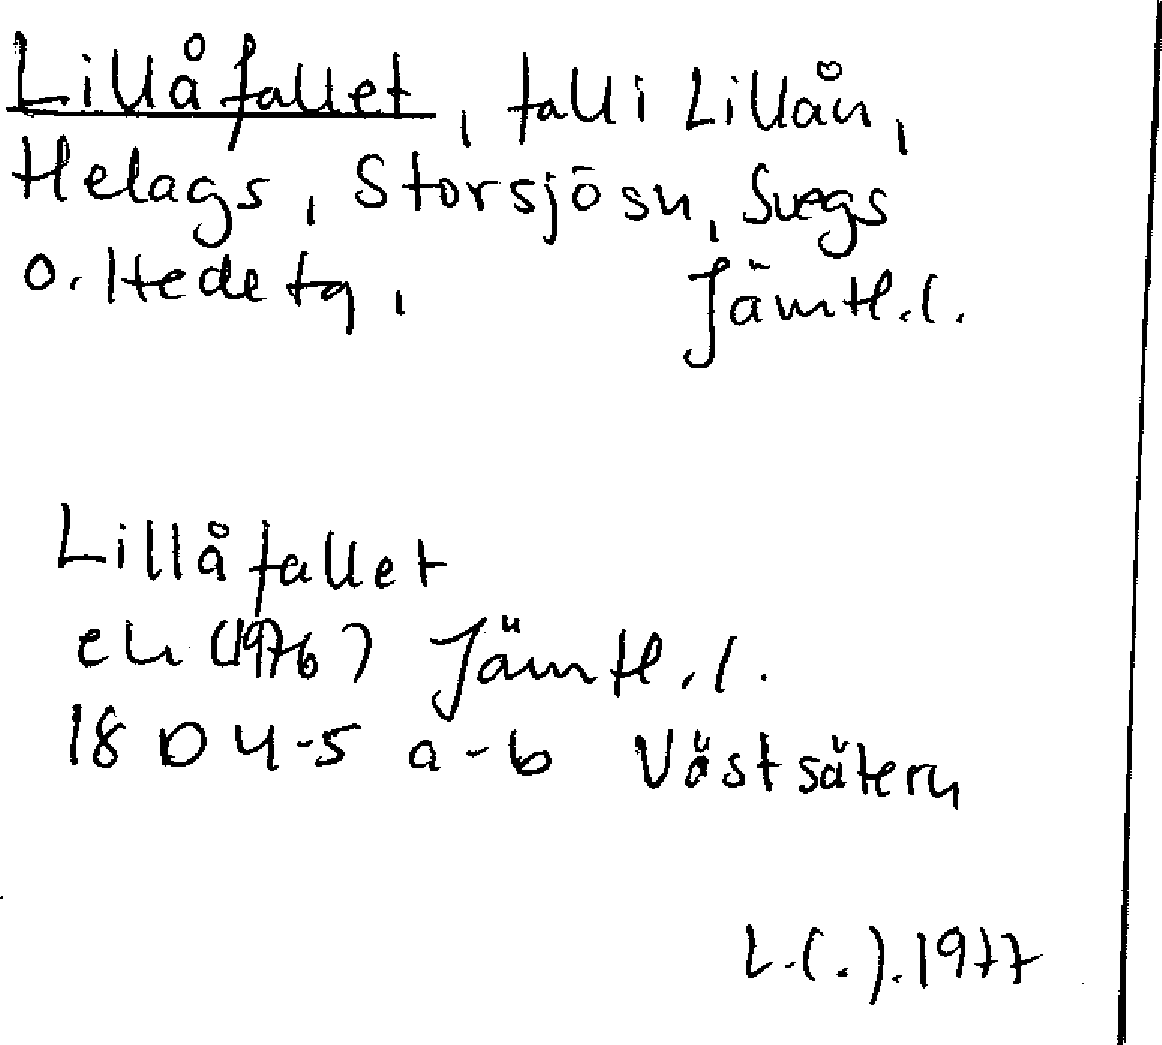 Lillåfallet, fall i Lillån,
Helags, Storsjö sn, Svegs
o. Hede tg, Jämtl. l.
Lillåfallet
ek (1976) Jämtl. l.
18 D 4-5 a-b Västsätern
L.(.).1977